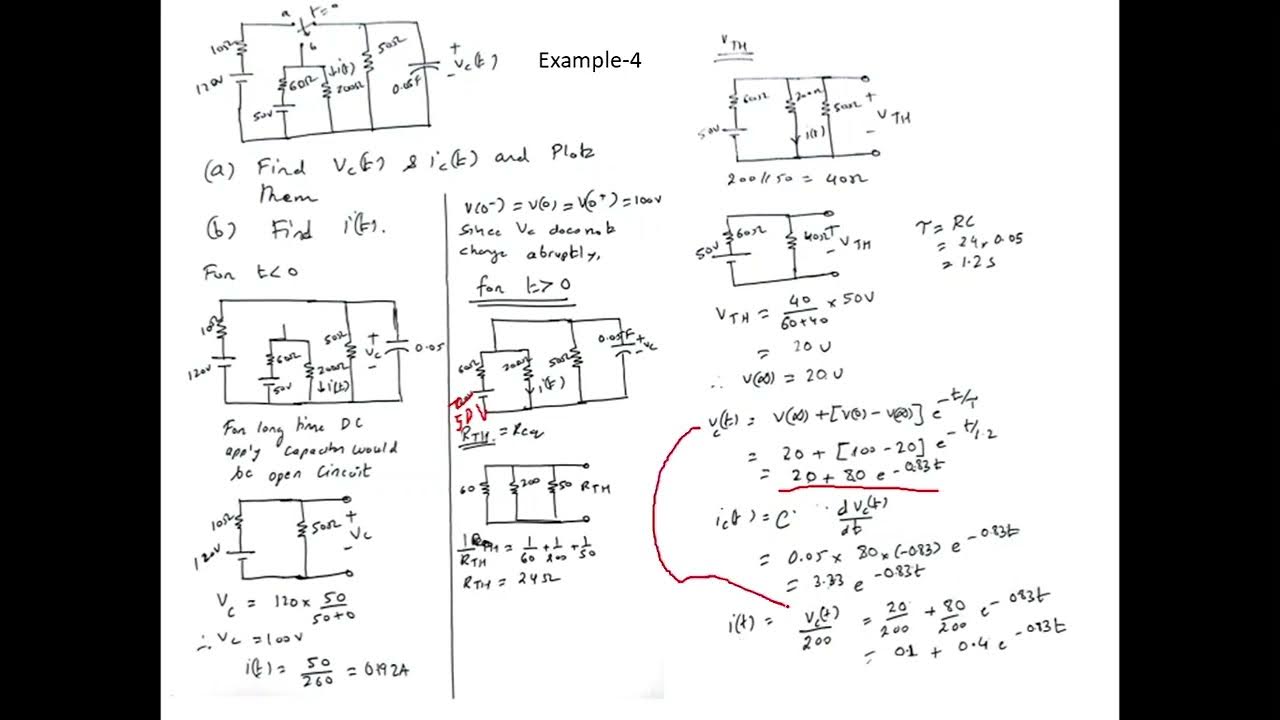 Example-4
a t=0
b
10Ω
120V
60Ω
50V
↓i(t)
200Ω
50Ω
0.05F
+
Vc(t)
-
(a) Find Vc(t) & ic(t) and Plot
them
(b) Find i(t).
For t<0
10Ω
120V
60Ω
50V
200Ω
↓i(t)
50Ω
+
Vc
-
0.05
For long time DC
apply Capacitor would
be open Circuit
10Ω
120V
50Ω
+
Vc
-
Vc = 120 x 50/50+0
∴ Vc = 100V
i(t) = 50/260 = 0.192A
V(0-) = V(0) = V(0+) = 100V
Since Vc does not
change abruptly,
for t>0
60Ω
50V
200Ω
↓i(t)
50Ω
0.05F
+
Vc
-
RTH = Req
60
200
50
RTH
1/RTH = 1/60 + 1/200 + 1/50
RTH = 24Ω
VTH
60Ω
50V
200Ω
i(t)
50Ω
+
VTH
-
200//50 = 40Ω
60Ω
50V
40Ω
+
VTH
-
τ = RC
= 24 x 0.05
= 1.2 s
VTH = 40/60+40 x 50V
= 20 V
∴ V(∞) = 20V
Vc(t) = V(∞) + [V(0) - V(∞)] e-t/τ
= 20 + [100-20] e-t/1.2
= 20 + 80 e-0.83t
ic(t) = C dVc(t)/dt
= 0.05 x 80 x (-0.83) e-0.83t
= 3.33 e-0.83t
i(t) = Vc(t)/200 = 20/200 + 80/200 e-0.83t
= 0.1 + 0.4 e-0.83t